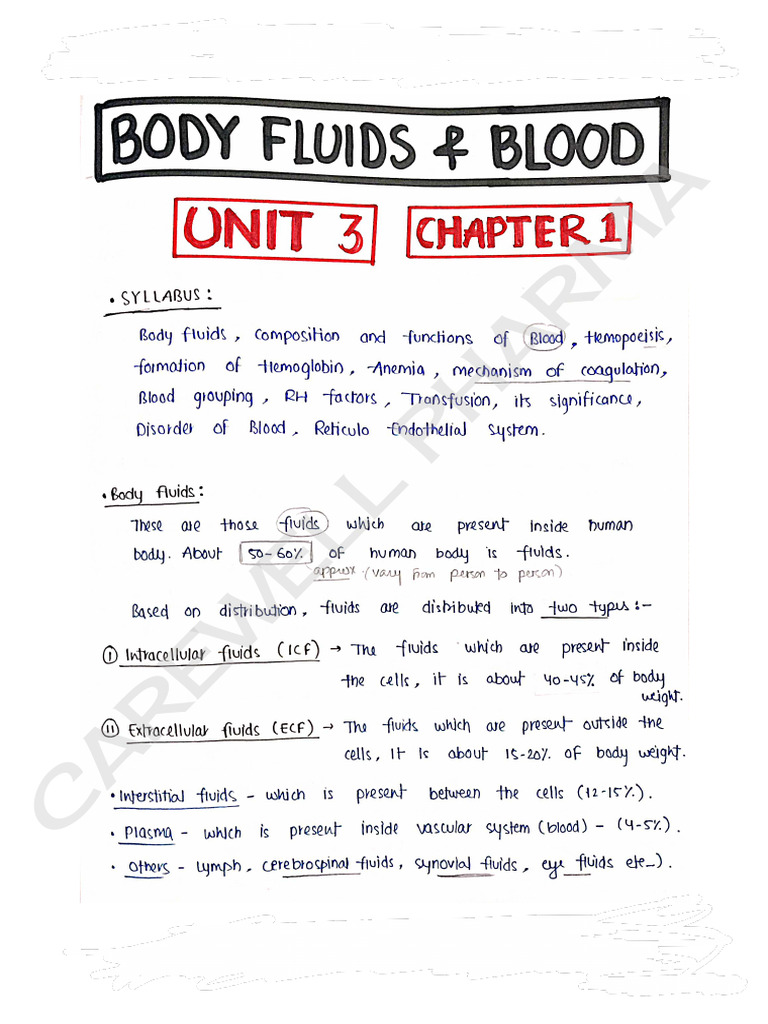 BODY FLUIDS & BLOOD
UNIT 3 CHAPTER 1
• SYLLABUS:
Body fluids, composition and functions of Blood, Hemopoeisis,
formation of Hemoglobin, Anemia, mechanism of coagulation,
Blood grouping, RH factors, Transfusion, its significance,
Disorder of Blood, Reticulo Endothelial system.
• Body fluids:
These are those fluids which are present inside human
body. About 50-60% of human body is fluids.
approx. (vary from person to person)
Based on distribution, fluids are distributed into two types:-
(I) Intracellular fluids (ICF) → The fluids which are present inside
the cells, it is about 40-45% of body
weight.
(II) Extracellular fluids (ECF) → The fluids which are present outside the
cells, It is about 15-20% of body weight.
• Interstitial fluids - which is present between the cells (12-15%).
• Plasma - which is present inside vascular system (blood) - (4-5%).
• Others - Lymph, cerebrospinal fluids, synovial fluids, eye fluids etc_).
CAREWELL PHARMA